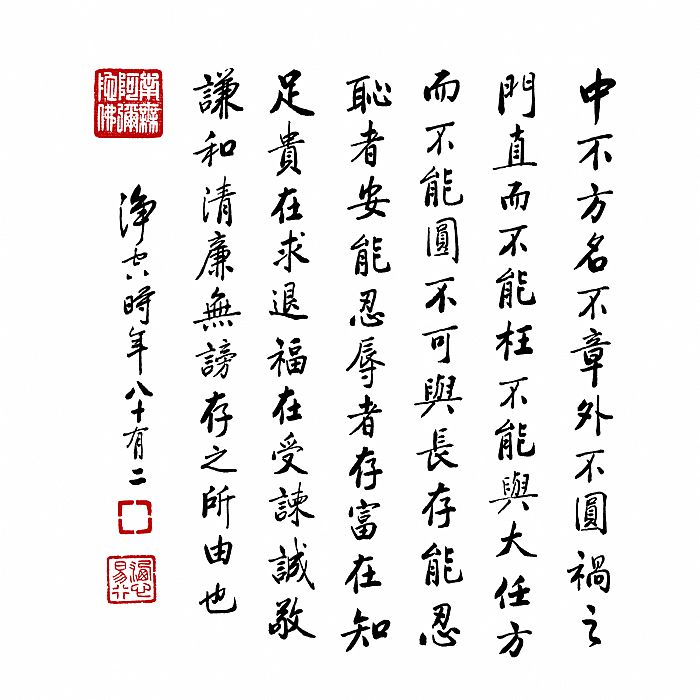 中不方名不章外不圓禍之
門直而不能枉不能與大任方
而不能圓不可與長存能忍
恥者安能忍辱者存富在知
足貴在求退福在受諫誠敬
謙和清廉無謗存之所由也
南無阿彌陀佛
淨空時年八十有二